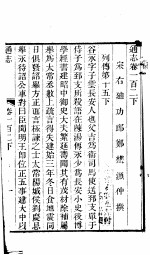 通志卷一百二下
宋右迪功郎鄭樵漁仲撰
列傳第十五下
谷永字子雲長安人也父吉為衛司馬使送郅支單于
侍子為郅支所殺語在陳湯傳永少為長安小史後博
學經書建昭中御史大夫繁延壽聞其有茂材除補屬
舉為太常丞數上疏言得失建始三年冬日食地震同
日俱發詔舉方正直言極諫之士太常陽城侯劉慶忌
舉永待詔公車對曰臣聞明王即位正五事建大中以
通志
卷一百二下